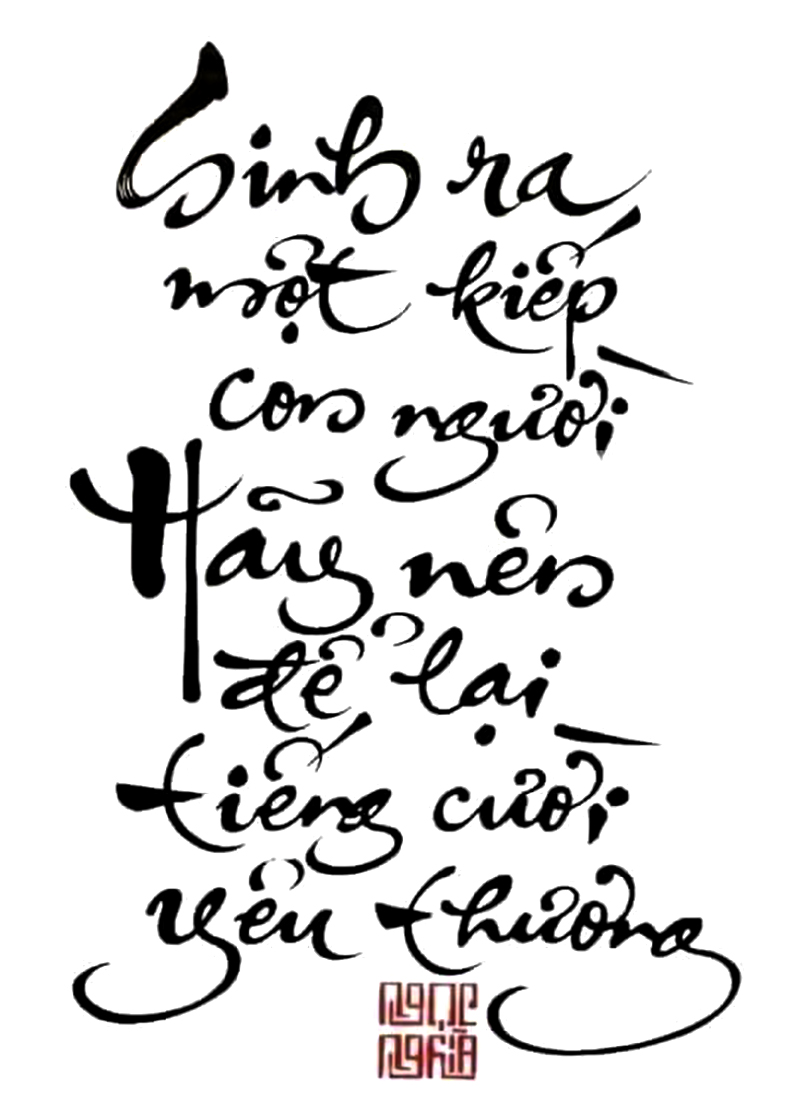 Sinh ra
một kiếp
con người
Hãy nên
để lại
tiếng cười
yêu thương
Ngọc
Nghĩa